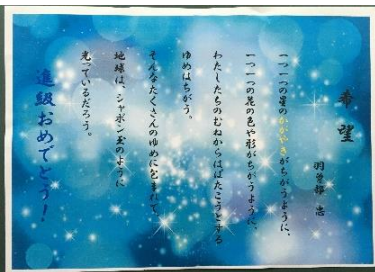 希望
羽曽部 忠
一つ一つの星のかがやきがちがうように、
一つ一つの花の色や形がちがうように、
わたしたちのむねからはばたこうとする
ゆめはちがう。
そんなたくさんのゆめにつつまれて、
地球は、シャボン玉のように
光っているだろう。
進級おめでとう！